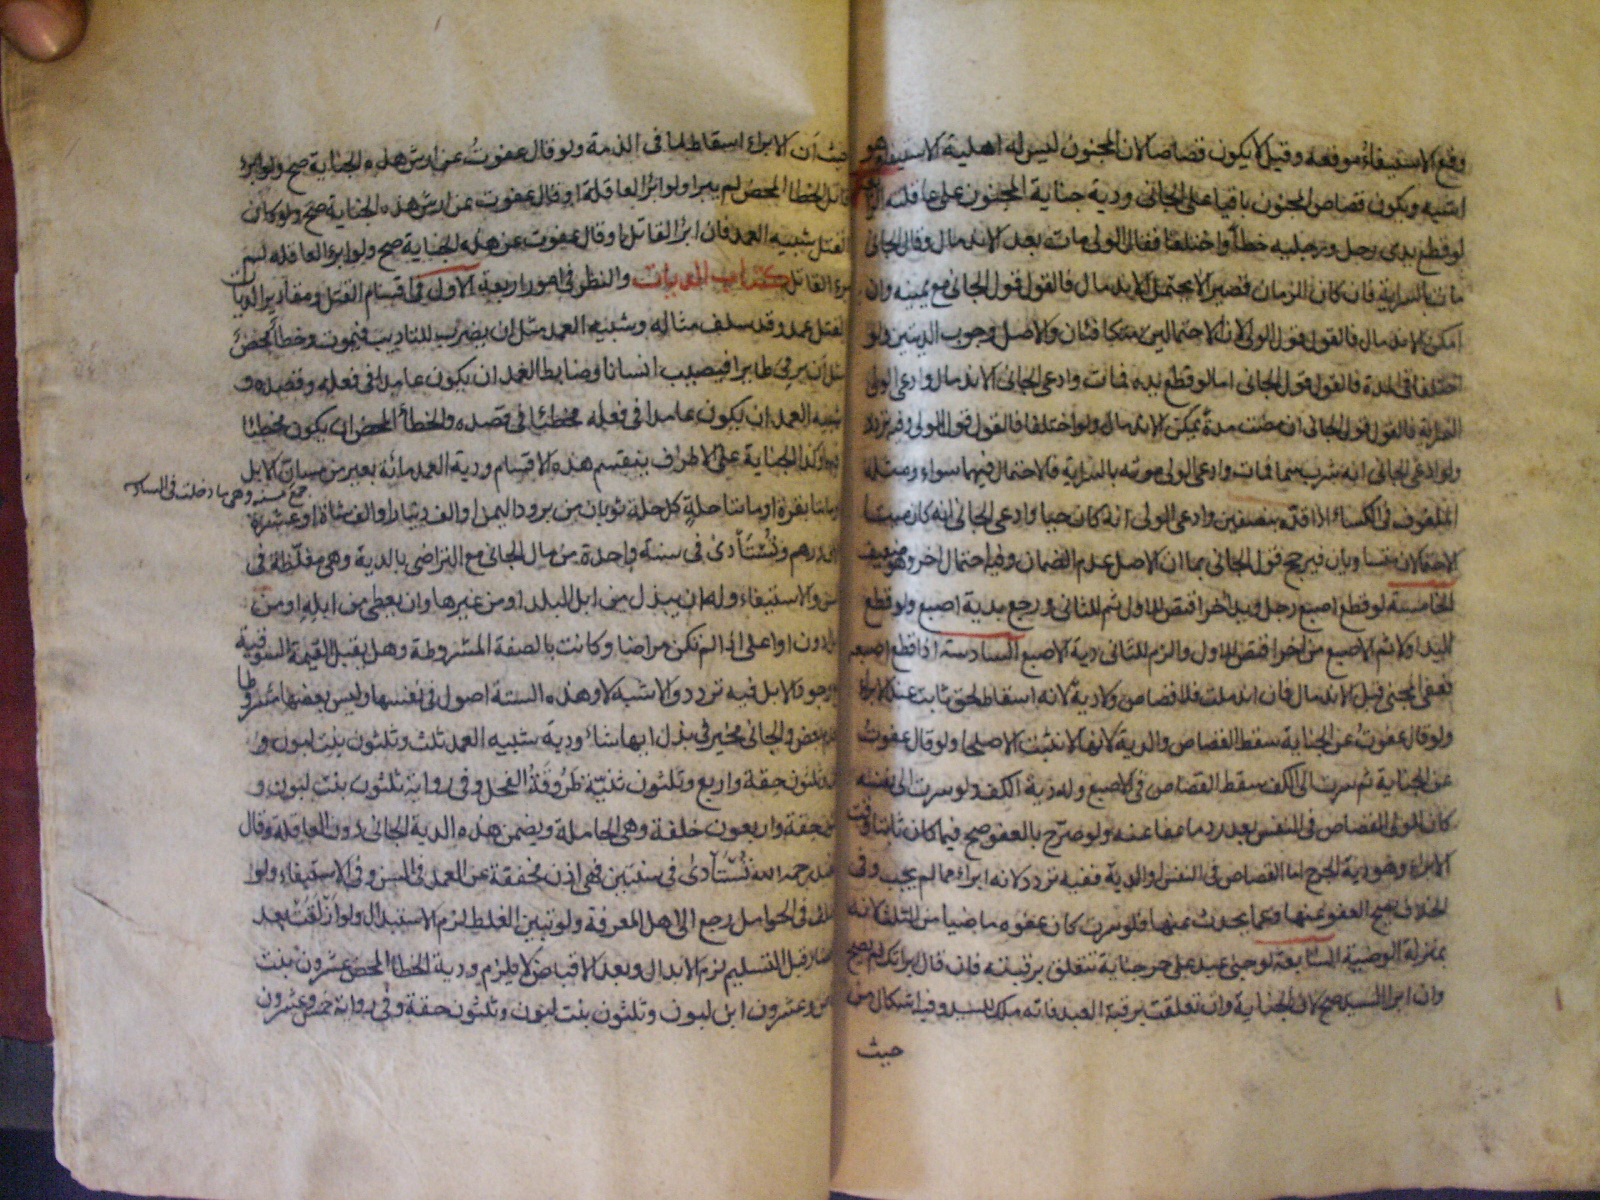 وقع الاستيفاء موقعه وقيل لا يكون قصاصا لان المجنون ليس له اهلية الاستيفاء وهو
اشبه ويكون قصاص المجنون باقيا على الجاني ودية جناية المجنون على عاقلته
لو قطع يدي رجل ورجليه خطأ واختلفا فقال الولي مات بعد الاندمال وقال الجاني
مات بالسراية فان كان الزمان قصيرا لا يحتمل الاندمال فالقول قول الجاني مع يمينه وان
امكن الاندمال فالقول قول الولي لان الاحتمالين متكافئان والاصل وجوب الديتين ولو
اختلفا في المدة فالقول قول الجاني اما لو قطع يده فمات وادعى الجاني الاندمال وادعى الولي
السراية فالقول قول الجاني ان مضت مدة يمكن الاندمال ولو اختلفا فالقول قول الولي وفيه تردد
ولو ادعى الجاني انه شرب سما فمات وادعى الولي موته بالسراية فالاحتمال فيهما سواء ومثله
الملفوف في الكساء اذا قده بنصفين وادعى الولي انه كان حيا وادعى الجاني انه كان ميتا
الاحتمالان متساويان فيرجح قول الجاني بما ان الاصل عدم الضمان وفيه احتمال اخر وهو ضعيف
الخامسة لو قطع اصبع رجل ويد اخر اقتص للاول ثم للثاني ورجع بدية اصبع ولو قطع
اليد اولا ثم الاصبع من اخر اقتص للاول والزم للثاني دية الاصبع السادسة اذا قطع اصبعه
فعفى المجني قبل الاندمال فان اندملت فلا قصاص ولا دية لانه اسقاط لحق ثابت عند الابراء
ولو قال عفوت عن الجناية سقط القصاص والدية لانها لا تثبت الا صلحا ولو قال عفوت
عن الجناية ثم سرت الى الكف سقط القصاص في الاصبع وله دية الكف ولو سرت الى نفسه
كان للولي القصاص في النفس بعد رد ما عفا عنه ولو صرح بالعفو صح فيما كان ثابتا وقت
الابراء وهو دية الجرح اما القصاص في النفس او الدية ففيه تردد لانه ابراء مما لم يجب وفي
الخلاف يصح العفو عنها وعما يحدث عنها فلو سرت كان عفوه ماضيا من الثلث لانه
بمنزلة الوصية السابعة لو جنى عبد على حر جناية تتعلق برقبته فان قال ابراتك لم يصح
وان ابرا السيد صح لان الجناية وان تعلقت برقبة العبد فانه ملك للسيد وفيه اشكال من
حيث
حيث ان الابراء اسقاط لما في الذمة ولو قال عفوت عن ارش هذه الجناية صح ولو ابرء
قاتل الخطا المحض لم يبرا ولو ابرا العاقلة او قال عفوت عن ارش هذه الجناية صح ولو كان
القتل شبيه العمد فان ابرا القاتل او قال عفوت عن هذه الجناية صح ولو ابرء العاقلة لم
يبرء القاتل كتاب الديات والنظر في امور اربعة الاول في اقسام القتل ومقادير الديات
القتل عمد وقد سلف مثاله وشبيه العمد مثل ان يضرب للتاديب فيموت وخطا محض
مثل ان يرمي طايرا فيصيب انسانا وضابط العمد ان يكون عامدا في فعله وقصده و
شبيه العمد ان يكون عامدا في فعله مخطئا في قصده والخطأ المحض ان يكون مخطئا
فيهما وكذا الجناية على الاطراف ينقسم هذه الاقسام ودية العمد مائة بعير من مسان الابل
جمع مسنة وهي ما دخلت في السادسة
او مائتا بقرة او مائتا حلة كل حلة ثوبان من برود اليمن او الف دينار او الف شاة او عشرة
الاف درهم وتستأدى في سنة واحدة من مال الجاني مع التراضي بالدية وهي مغلظة في
السن والاستيفاء وله ان يبذل من ابل البلد او من غيرها وان يعطي من ابله او من
ابل ادون او اعلى اذا لم تكن مراضا وكانت بالصفة المشروطة وهل يقبل القيمة السوقية
مع وجود الابل فيه تردد والاشبه لا وهذه الستة اصول في نفسها وليس بعضها مشروطا
بعدم بعض والجاني مخير في بذل ايها شاء ودية شبيه العمد ثلث وثلثون بنت لبون و
ثلث وثلثون حقة واربع وثلثون ثنية طروقة الفحل وفي رواية ثلثون بنت لبون و
ثلثون حقة واربعون خلفة وهي الحاملة ويضمن هذه الدية الجاني دون العاقلة وقال
المفيد رحمه الله تستأدى في سنتين فهي اذن مخففة عن العمد في السن وفي الاستيفاء ولو ا
ختلف في الحوامل رجع الى اهل المعرفة ولو تبين الغلط لزم الاستبدال ولو ازلقت بعد
احضار قبل التسليم لزم الابدال وبعد الاقباض لا يلزم ودية الخطا المحض عشرون بنت
مخاض وعشرون ابن لبون وثلثون بنت لبون وثلثون حقة وفي رواية خمس وعشرون